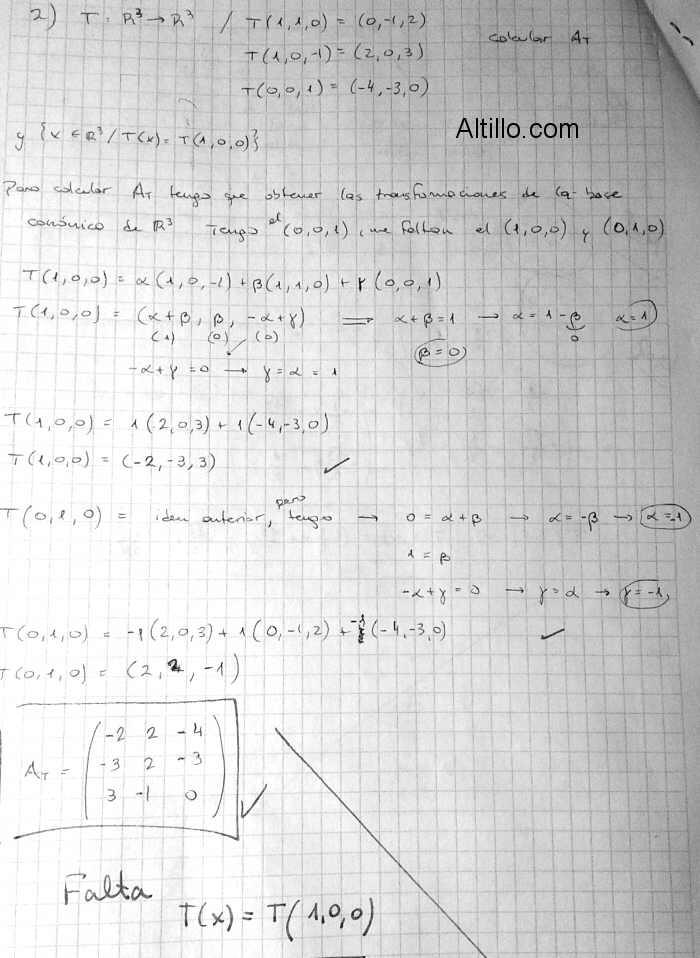 2) T: R³→R³ / T(1,1,0) = (0,-1,2) calcular A_T
T(1,0,-1) = (2,0,3)
T(0,0,1) = (-4,-3,0)
y {x ∈ R³ / T(x) = T(1,0,0)}
Altillo.com
Para calcular A_T tengo que obtener las transformaciones de la base
canónica de R³ Tengo el (0,0,1), me faltan el (1,0,0) y (0,1,0)
T(1,0,0) = α(1,0,-1) + β(1,1,0) + γ(0,0,1)
T(1,0,0) = (α+β, β, -α+γ) ⟹ α+β=1 → α=1-β α=1
(1) (0) (0) β=0 0
-α+γ=0 → γ=α=1
T(1,0,0) = 1(2,0,3) + 1(-4,-3,0)
T(1,0,0) = (-2,-3,3) ✓
T(0,1,0) = idem anterior, pero tengo → 0 = α+β → α=-β → α=-1
1 = β
-α+γ=0 → γ=α → γ=-1
T(0,1,0) = -1(2,0,3) + 1(0,-1,2) + -1(-4,-3,0) ✓
T(0,1,0) = (2,2,-1)
-2 2 -4
A_T = -3 2 -3
3 -1 0 ✓
Falta
T(x) = T(1,0,0)